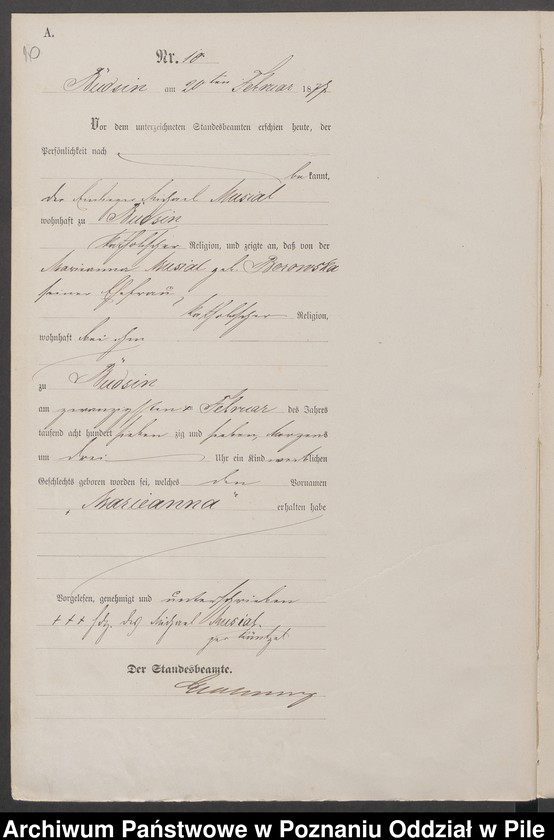 A.
10
Nr. 10
Budsin am 20ten Februar 1877
Vor dem unterzeichneten Standesbeamten erschien heute, der
Persönlichkeit nach
bekannt,
der Michael Musial
wohnhaft zu Budsin
katholischer Religion, und zeigte an, daß von der
Marianna Musial geb. Borowska
seiner Ehefrau,
katholischer Religion,
wohnhaft bei ihm
zu Budsin
am zwanzigsten Februar des Jahres
tausend acht hundert sieben zig und sieben, Morgens
um drei Uhr ein Kind weiblichen
Geschlechts geboren worden sei, welches den Vornamen
„Marieanna“ erhalten habe
Vorgelesen, genehmigt und unterschrieben
+++ Hdz. des Michael Musial.
Der Standesbeamte.
Archiwum Państwowe w Poznaniu Oddział w Pile